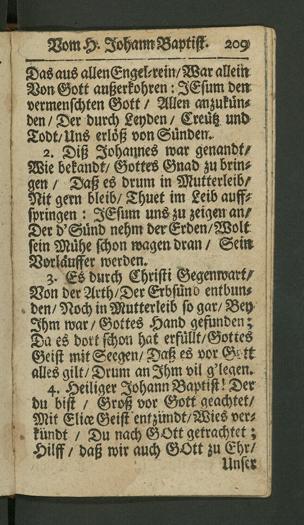 Vom H. Johann Baptist. 209
Das aus allen Engel-rein/ War allein
Von Gott außerkohren: JEsum den
vermenschten Gott/ Allen anzukün-
den/ Der durch Leyden/ Creütz und
Todt/ Uns erlöß von Sünden.
2. Diß Johannes war genandt/
Wie bekandt/ Gottes Gnad zu brin-
gen/ Daß es drum in Mutterleib/
Nit gern bleib/ Thuet im Leib auff-
springen: JEsum uns zu zeigen an/
Der d'Sünd nehm der Erden/ Wolt
sein Mühe schon wagen dran/ Sein
Vorläuffer werden.
3. Es durch Christi Gegenwart/
Von der Arth/ Der Erbsünd entbun-
den/ Noch in Mutterleib so gar/ Bey
Ihm war/ Gottes Hand gefunden;
Da es dort schon hat erfüllt/ Gottes
Geist mit Seegen/ Daß es vor Gott
alles gilt/ Drum an Ihm vil g'legen.
4. Heiliger Johann Baptist! Der
du bist/ Groß vor Gott geachtet/
Mit Eliæ Geist entzündt/ Wies ver-
kündt/ Du nach GOtt getrachtet;
Hilff/ daß wir auch GOtt zu Ehr/
Unser